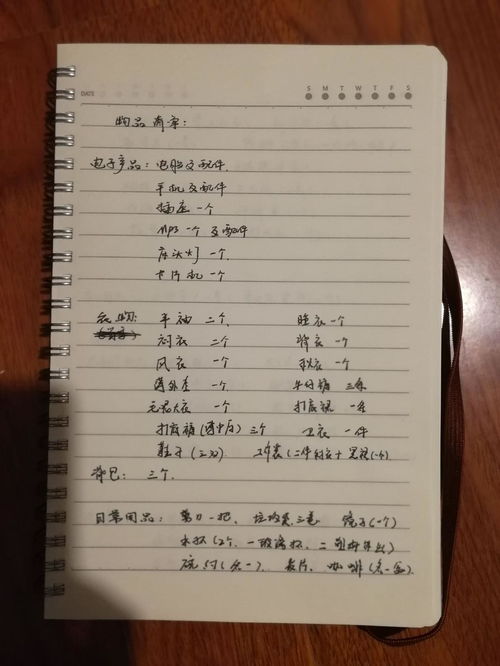 DATE S M T W T F S
物品清单:
电子产品: 电脑及配件
手机及配件
插座一个
MP3一个及配件
床头灯一个
卡片机一个
衣物: 半袖 二个 睡衣一个
衬衣 二个 背衣一个
风衣 一个 秋衣一个
薄外套 一个 牛仔裤 三条
毛呢大衣 一个 打底裙 一条
打底裤(薄中厚)三个 卫衣 一件
鞋子(三双) 工作装(二件衬衣+黑裙(1个)
背包: 三个.
日常用品: 剪刀一把, 垃圾袋三卷 镜子(一个)
水杯(2个,一玻璃杯,二塑料 )
碗 (各一). 麦片, 咖啡(各一盒)